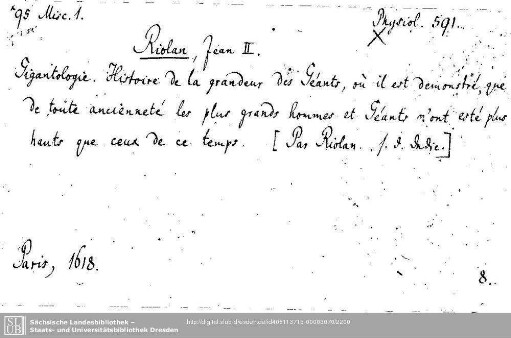 95 Misc. 1.
Physiol. 591.
Riolan, Jean II.
Gigantologie. Histoire de la grandeur des Géants, où il est demonstré, que
de toute ancienneté les plus grands hommes et Géants n'ont esté plus
hauts que ceux de ce temps. [Par Riolan. s. d. Indic.]
Paris, 1618.
8.
SLUB
Sächsische Landesbibliothek –
Staats- und Universitätsbibliothek Dresden